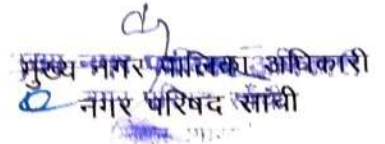 मुख्य नगर पालिका अधिकारी
नगर परिषद सांची